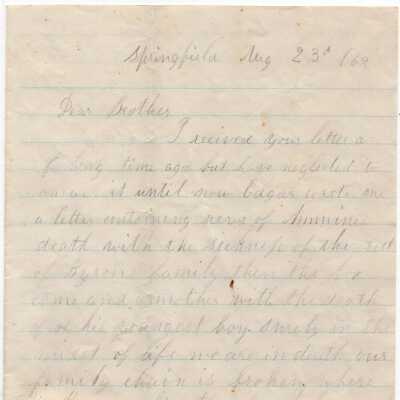 Springfield Aug 23d /69
Dear Brother
I received your letter a
long time ago but have neglected to
it until now Edgar wrote me
a letter containing news of
death with the sickness of the rest
of Byrons family then has
come and another with the death
of his youngest boy surely in the
midst of life we are in death our
family chain is broken where